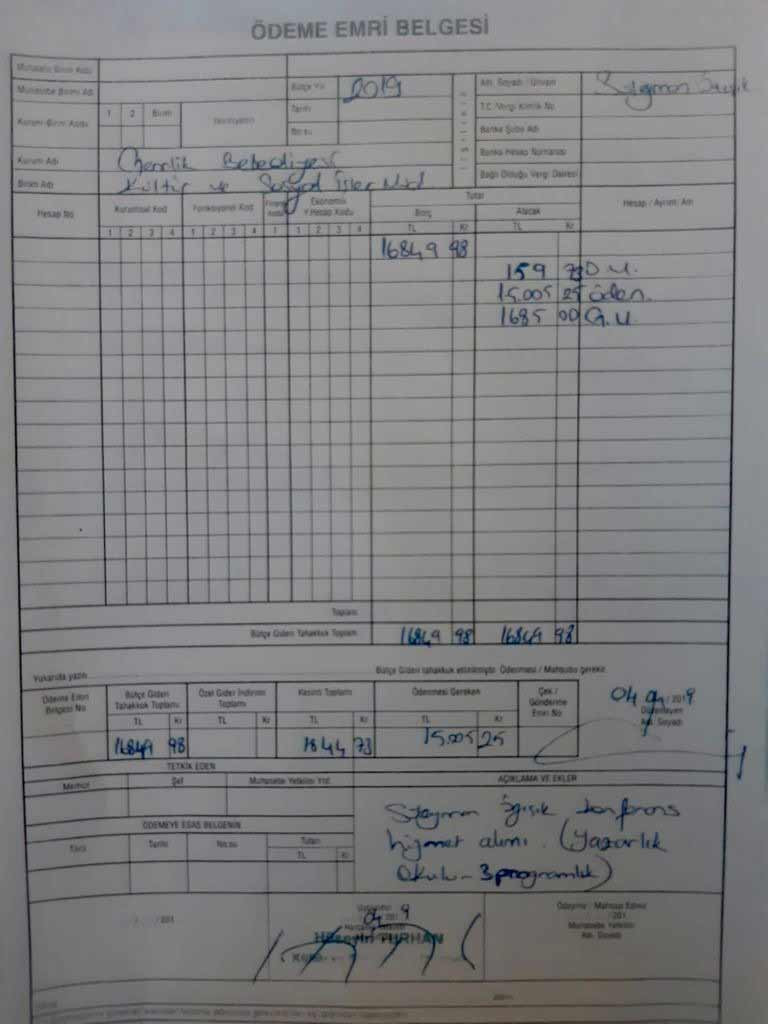 ÖDEME EMRİ BELGESİ
Muhasebe Birim Kodu
Muhasebe Birimi Adı
Bütçe Yılı 2019
Adı Soyadı / Ünvanı
Kurum-Birim Kodu 1 2 Birim
Tarihi
No.su
T.C./Vergi Kimlik No.
Banka Şube Adı
Banka Hesap Numarası
Bağlı Olduğu Vergi Dairesi
Kurum Adı Belediyesi
Birim Adı Kültür ve Sosyal İşler Müd
Hesap No Kurumsal Kod Fonksiyonel Kod Ekonomik Y.Hesap Kodu Tutar Hesap / Ayrıntı Adı
Borç Alacak
1 2 3 4 1 2 3 4 1 1 2 3 4 TL Kr TL Kr
16849 98
159 73 D.V.
15.005 25 öden.
1685 00 G.V.
Toplam
Bütçe Gideri Tahakkuk Toplam 16849 98 16849 98
Yukarıda yazılı Bütçe Gideri tahakkuk ettirilmiştir. Ödenmesi / Mahsubu gerekir.
Ödeme Emri Belgesi No
Bütçe Gideri Tahakkuk Toplamı
Özel Gider İndirimi Toplamı
Kesinti Toplamı
Ödenmesi Gereken
Çek / Gönderme Emri No
TL Kr TL Kr TL Kr TL Kr
16849 98 1844 73 15.005 25
/ 2019
Düzenleyen
Adı Soyadı
TETKİK EDEN
AÇIKLAMA VE EKLER
Memur Şef Muhasebe Yetkilisi Yrd.
ÖDEMEYE ESAS BELGENİN
Türü Tarihi No.su Tutarı
TL Kr
konferans
hizmet alımı. (Yazarlık
Okulu - 3 programlık)
201
Hüseyin TURHAN
Ödeyiniz / Mahsup Ediniz
201
Muhasebe Yetkilisi
Adı Soyadı